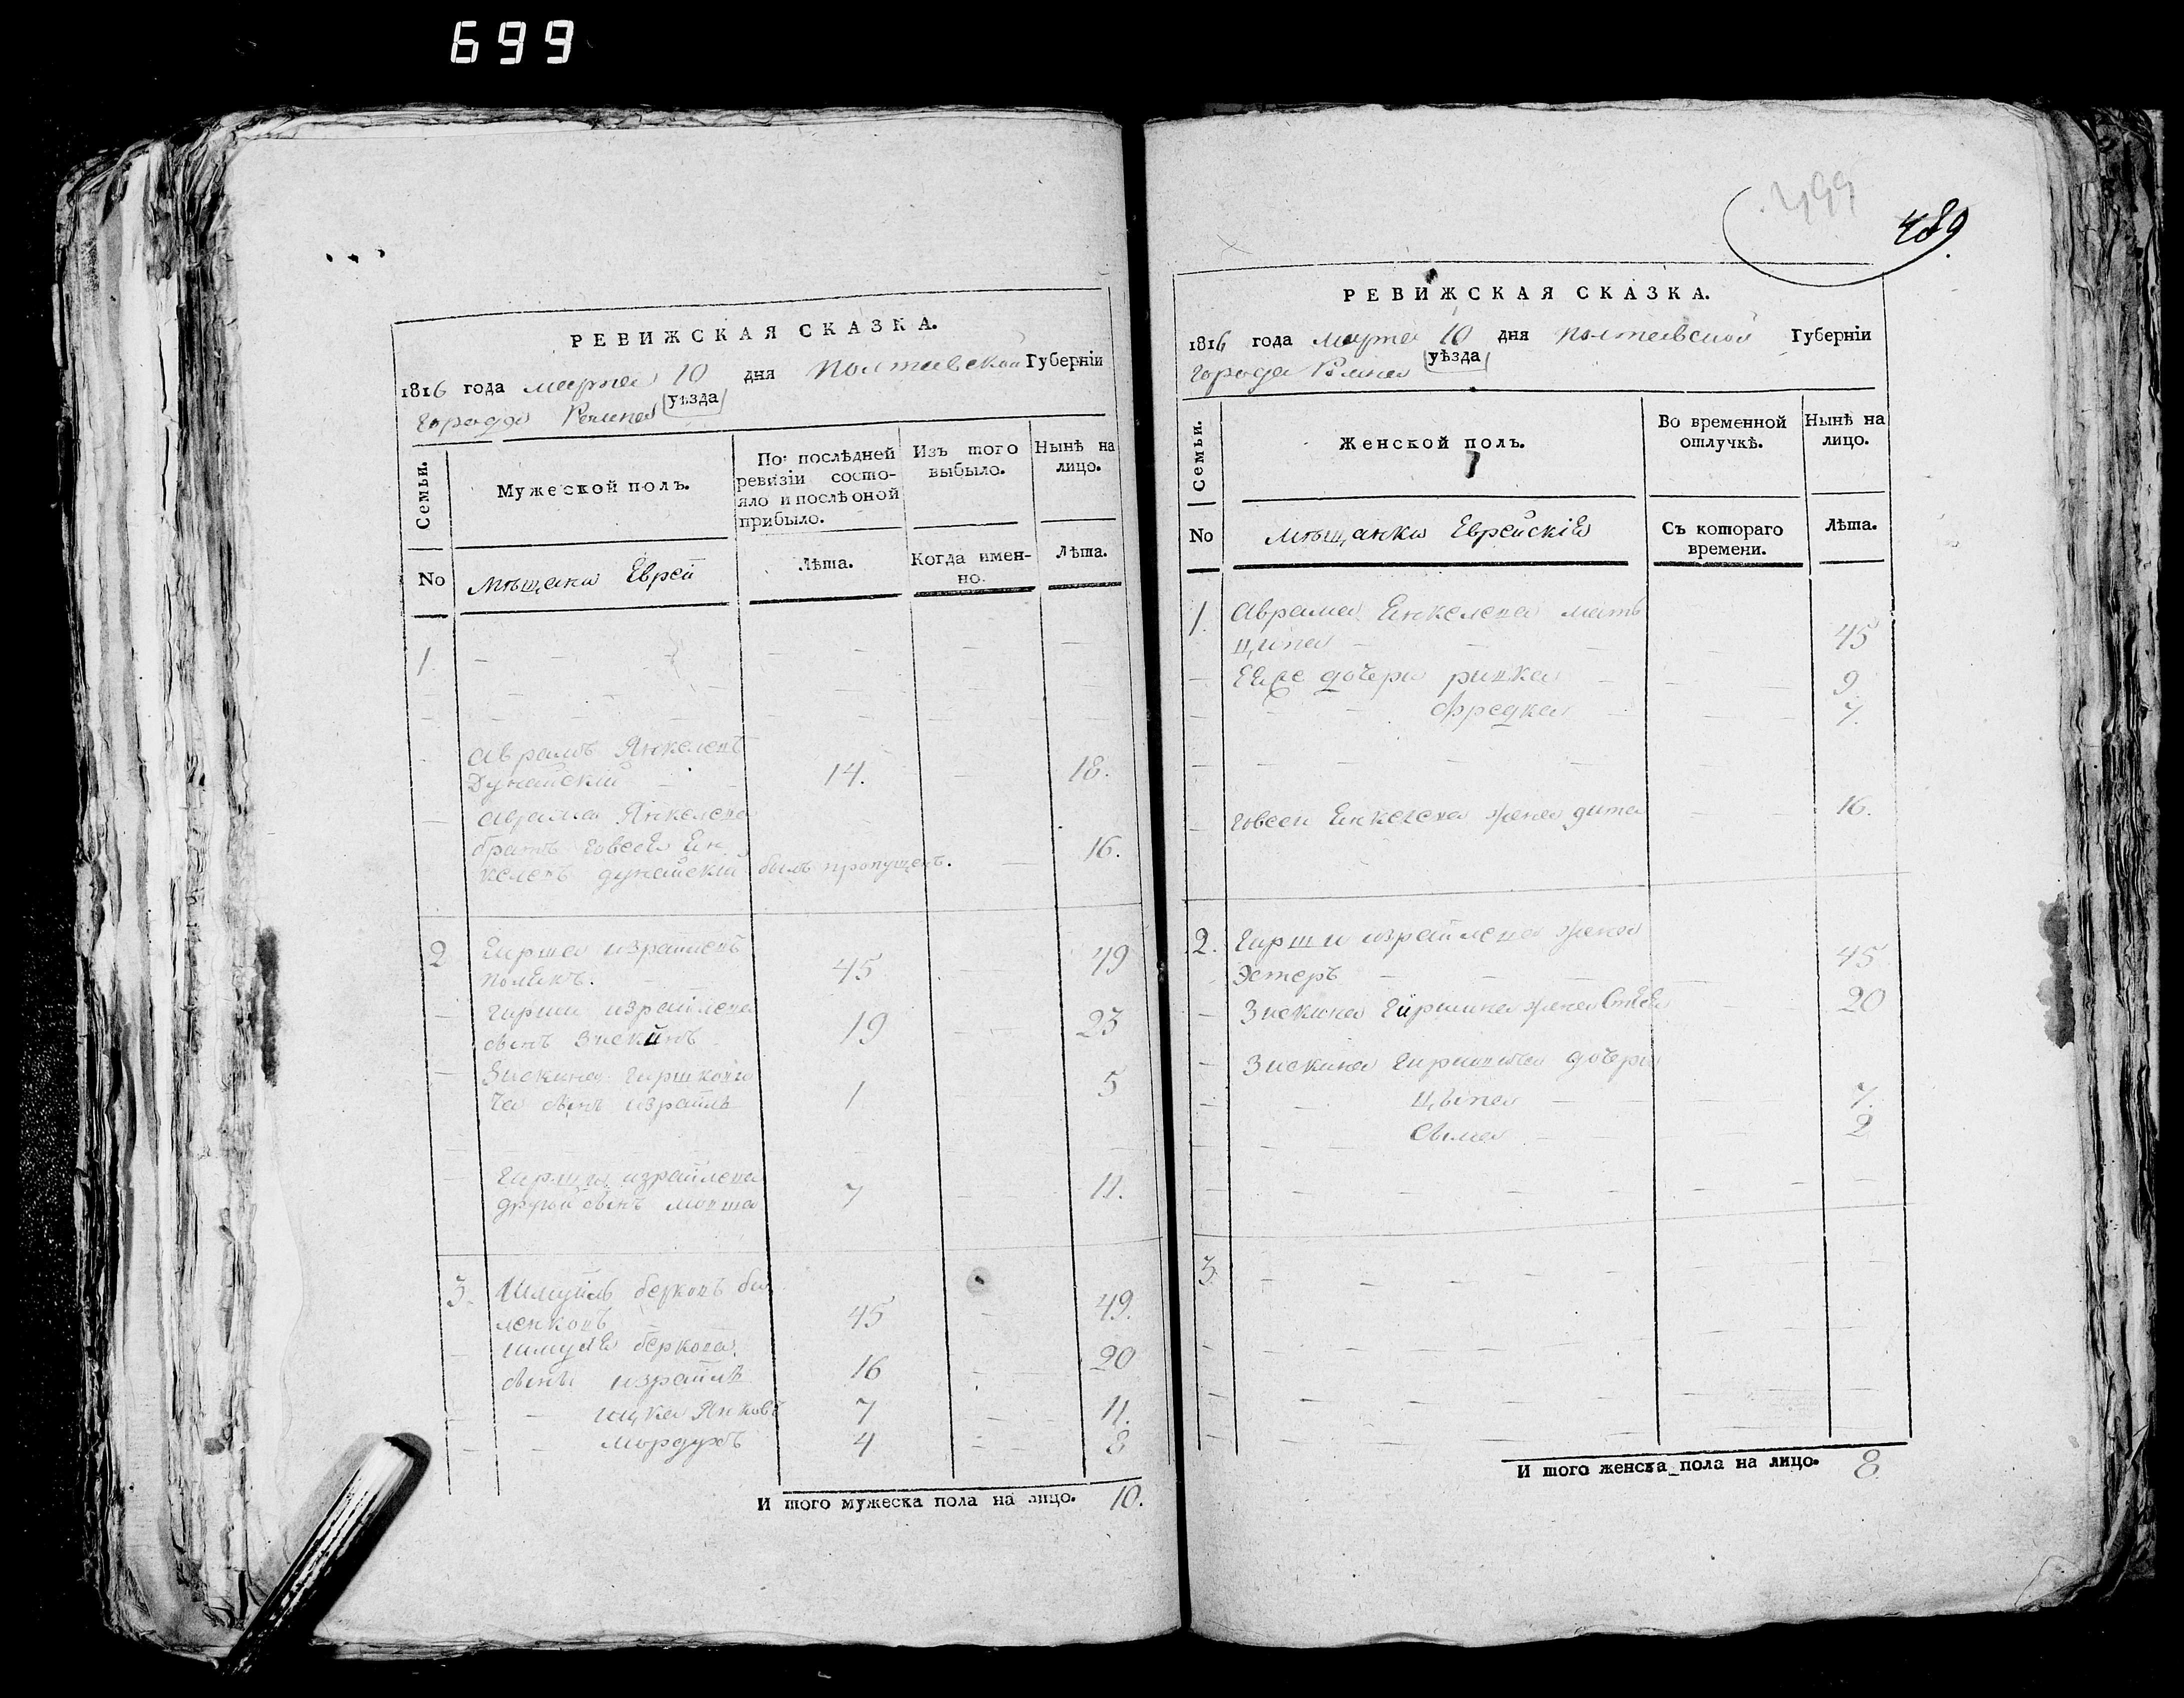 699
РЕВИЖСКАЯ СКАЗКА.
1816 года марта 10 дня Полтавской Губерніи
города Ромна уѣзда
Семьи.
Мужеской полъ.
По послѣдней ревизіи состо-
яло и послѣ оной
прибыло.
Изъ того
выбыло.
Нынѣ на
лицо.
No
Мѣщане Евреи
Лѣта.
Когда имен-
но.
Лѣта.
1.
Аврамъ Янкелевъ
Дунайскій 14. 18.
Аврама Янкелева
братъ Іовсей Ен
келевъ дунайскій былъ пропущенъ. 16.
2 Гирша израилевъ
45 49
Гирши израилева
сынъ Зискинъ 19 23
Зискина Гиршкови
ча сынъ израиль 1 5
Гирши израилева
другой сынъ Мовша 7 11.
3. Шмуйль берковъ би
ленковъ 45 49.
шмуля беркова
сынъ израиль 16 20
ицка Янковъ 7 11.
мордухъ 4 8
И того мужеска пола на лицо. 10.
499
489
РЕВИЖСКАЯ СКАЗКА.
1816 года марта 10 дня Полтавской Губерніи
города Ромна уѣзда
Семьи.
Женской полъ.
Во временной
отлучкѣ.
Нынѣ на
лицо.
No
Мѣщанки Еврейскіе
Съ котораго
времени.
Лѣта.
1. Аврама Енкелева мать
ципа 45
Ее дочери ривка 9
фредка 7.
Іовсеи Енкелева жена дита 16.
2. Гирши израилева жена
Эстеръ 45
Зискина Гиршина жена 20
Зискина дочери
Цыпа 7.
Сыма 2
3.
И того женска пола на лицо. 8.